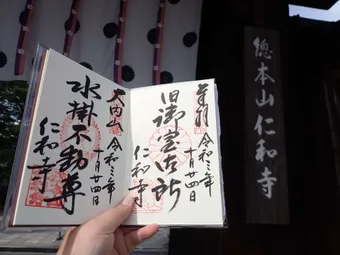 奉拝 令和三年
十月廿四日
旧御室御所
仁和寺
大内山 令和三年
十月廿四日
水掛不動尊
仁和寺
總本山仁和寺